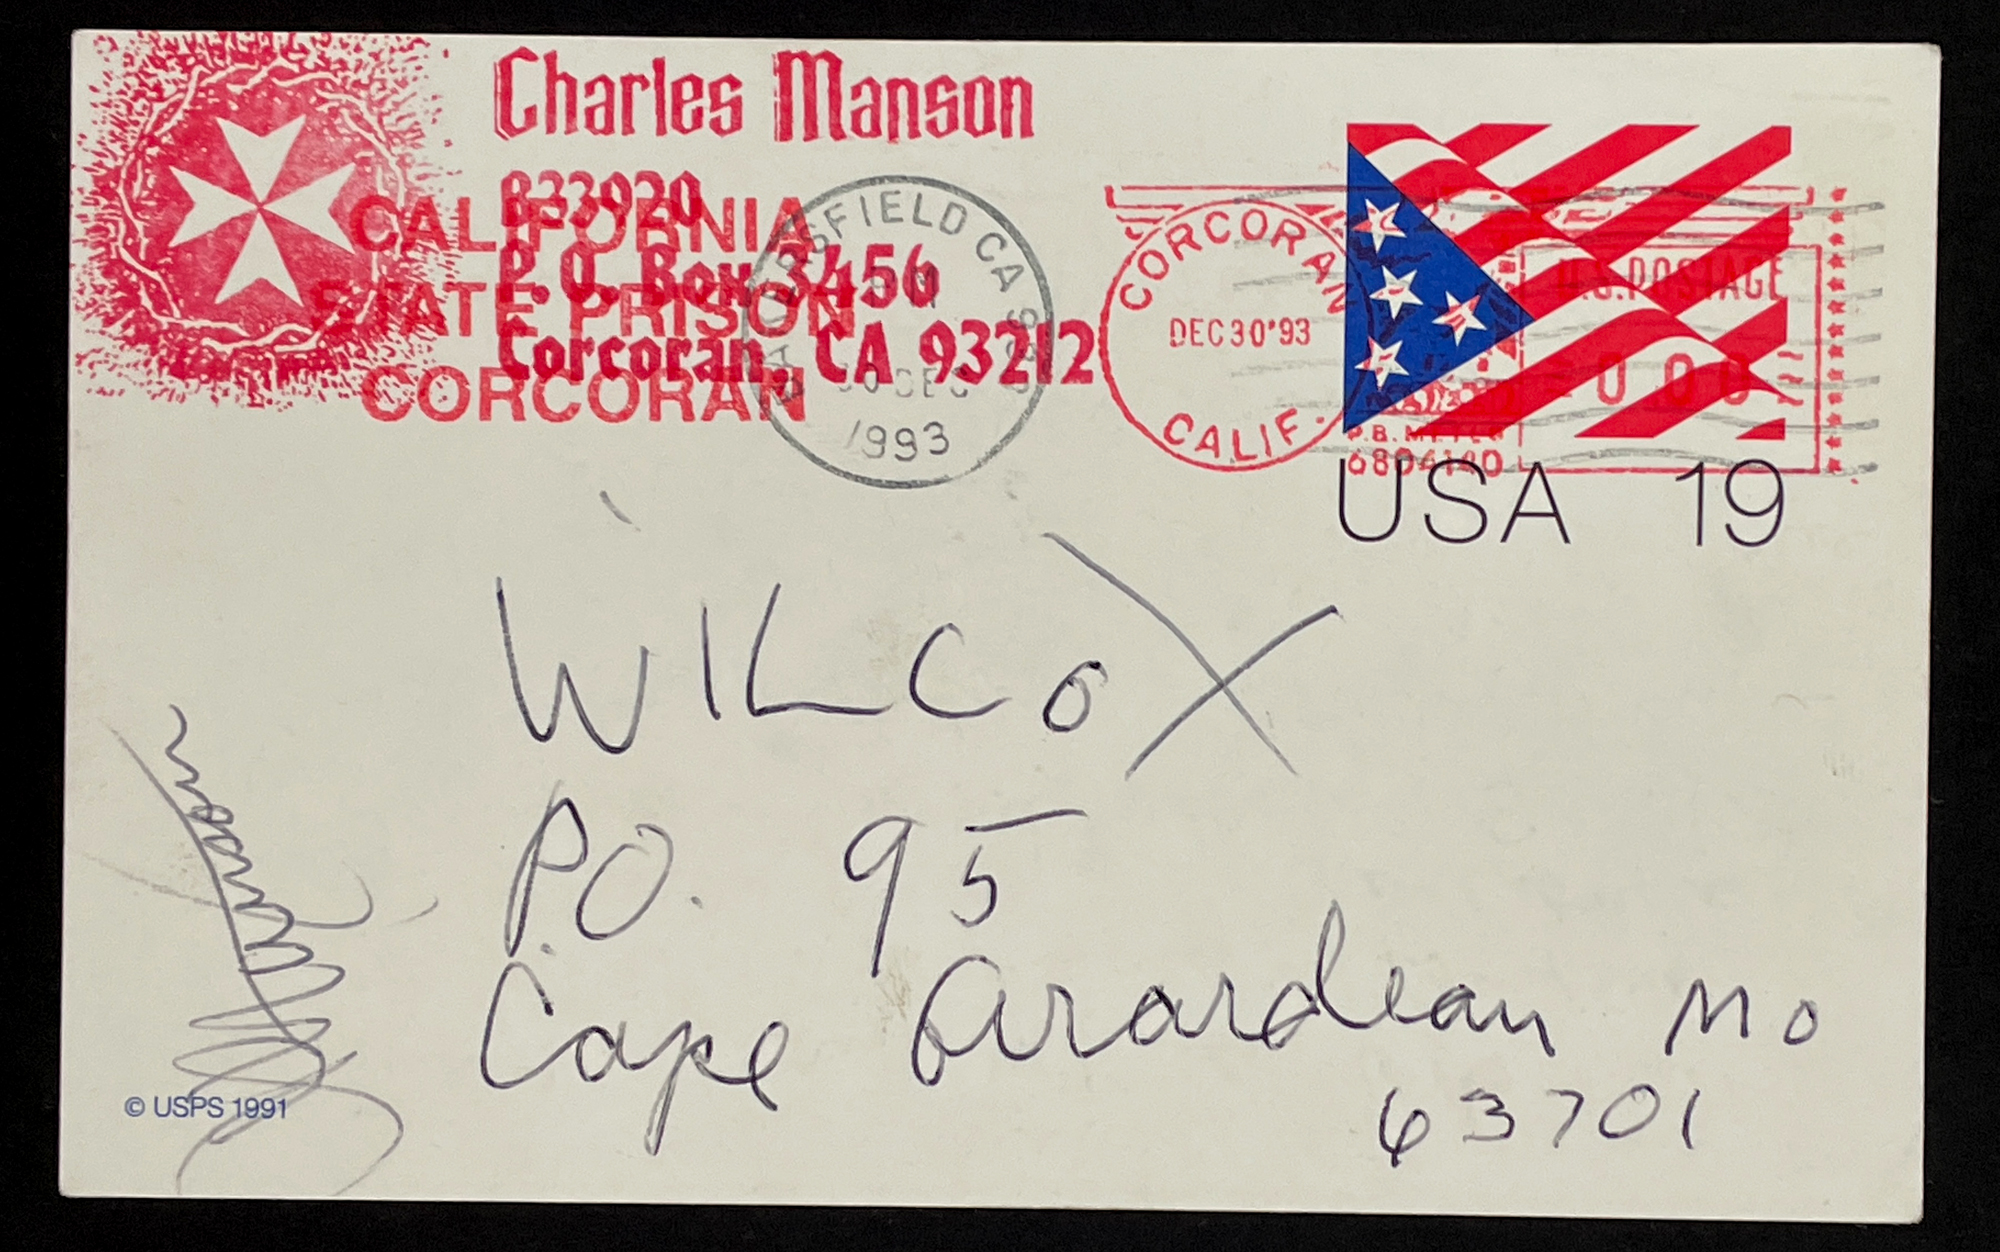 Charles Manson
B33920
P.O. Box 3456
Corcoran, CA 93212
CALIFORNIA
STATE PRISON
CORCORAN
BAKERSFIELD CA
PM
30 DEC
1993
CORCORAN
DEC 30 '93
CALIF.
U.S. POSTAGE
P.B. METER
6804140
USA 19
WILCOX
P.O. 95
Cape Girardeau Mo
63701
© USPS 1991